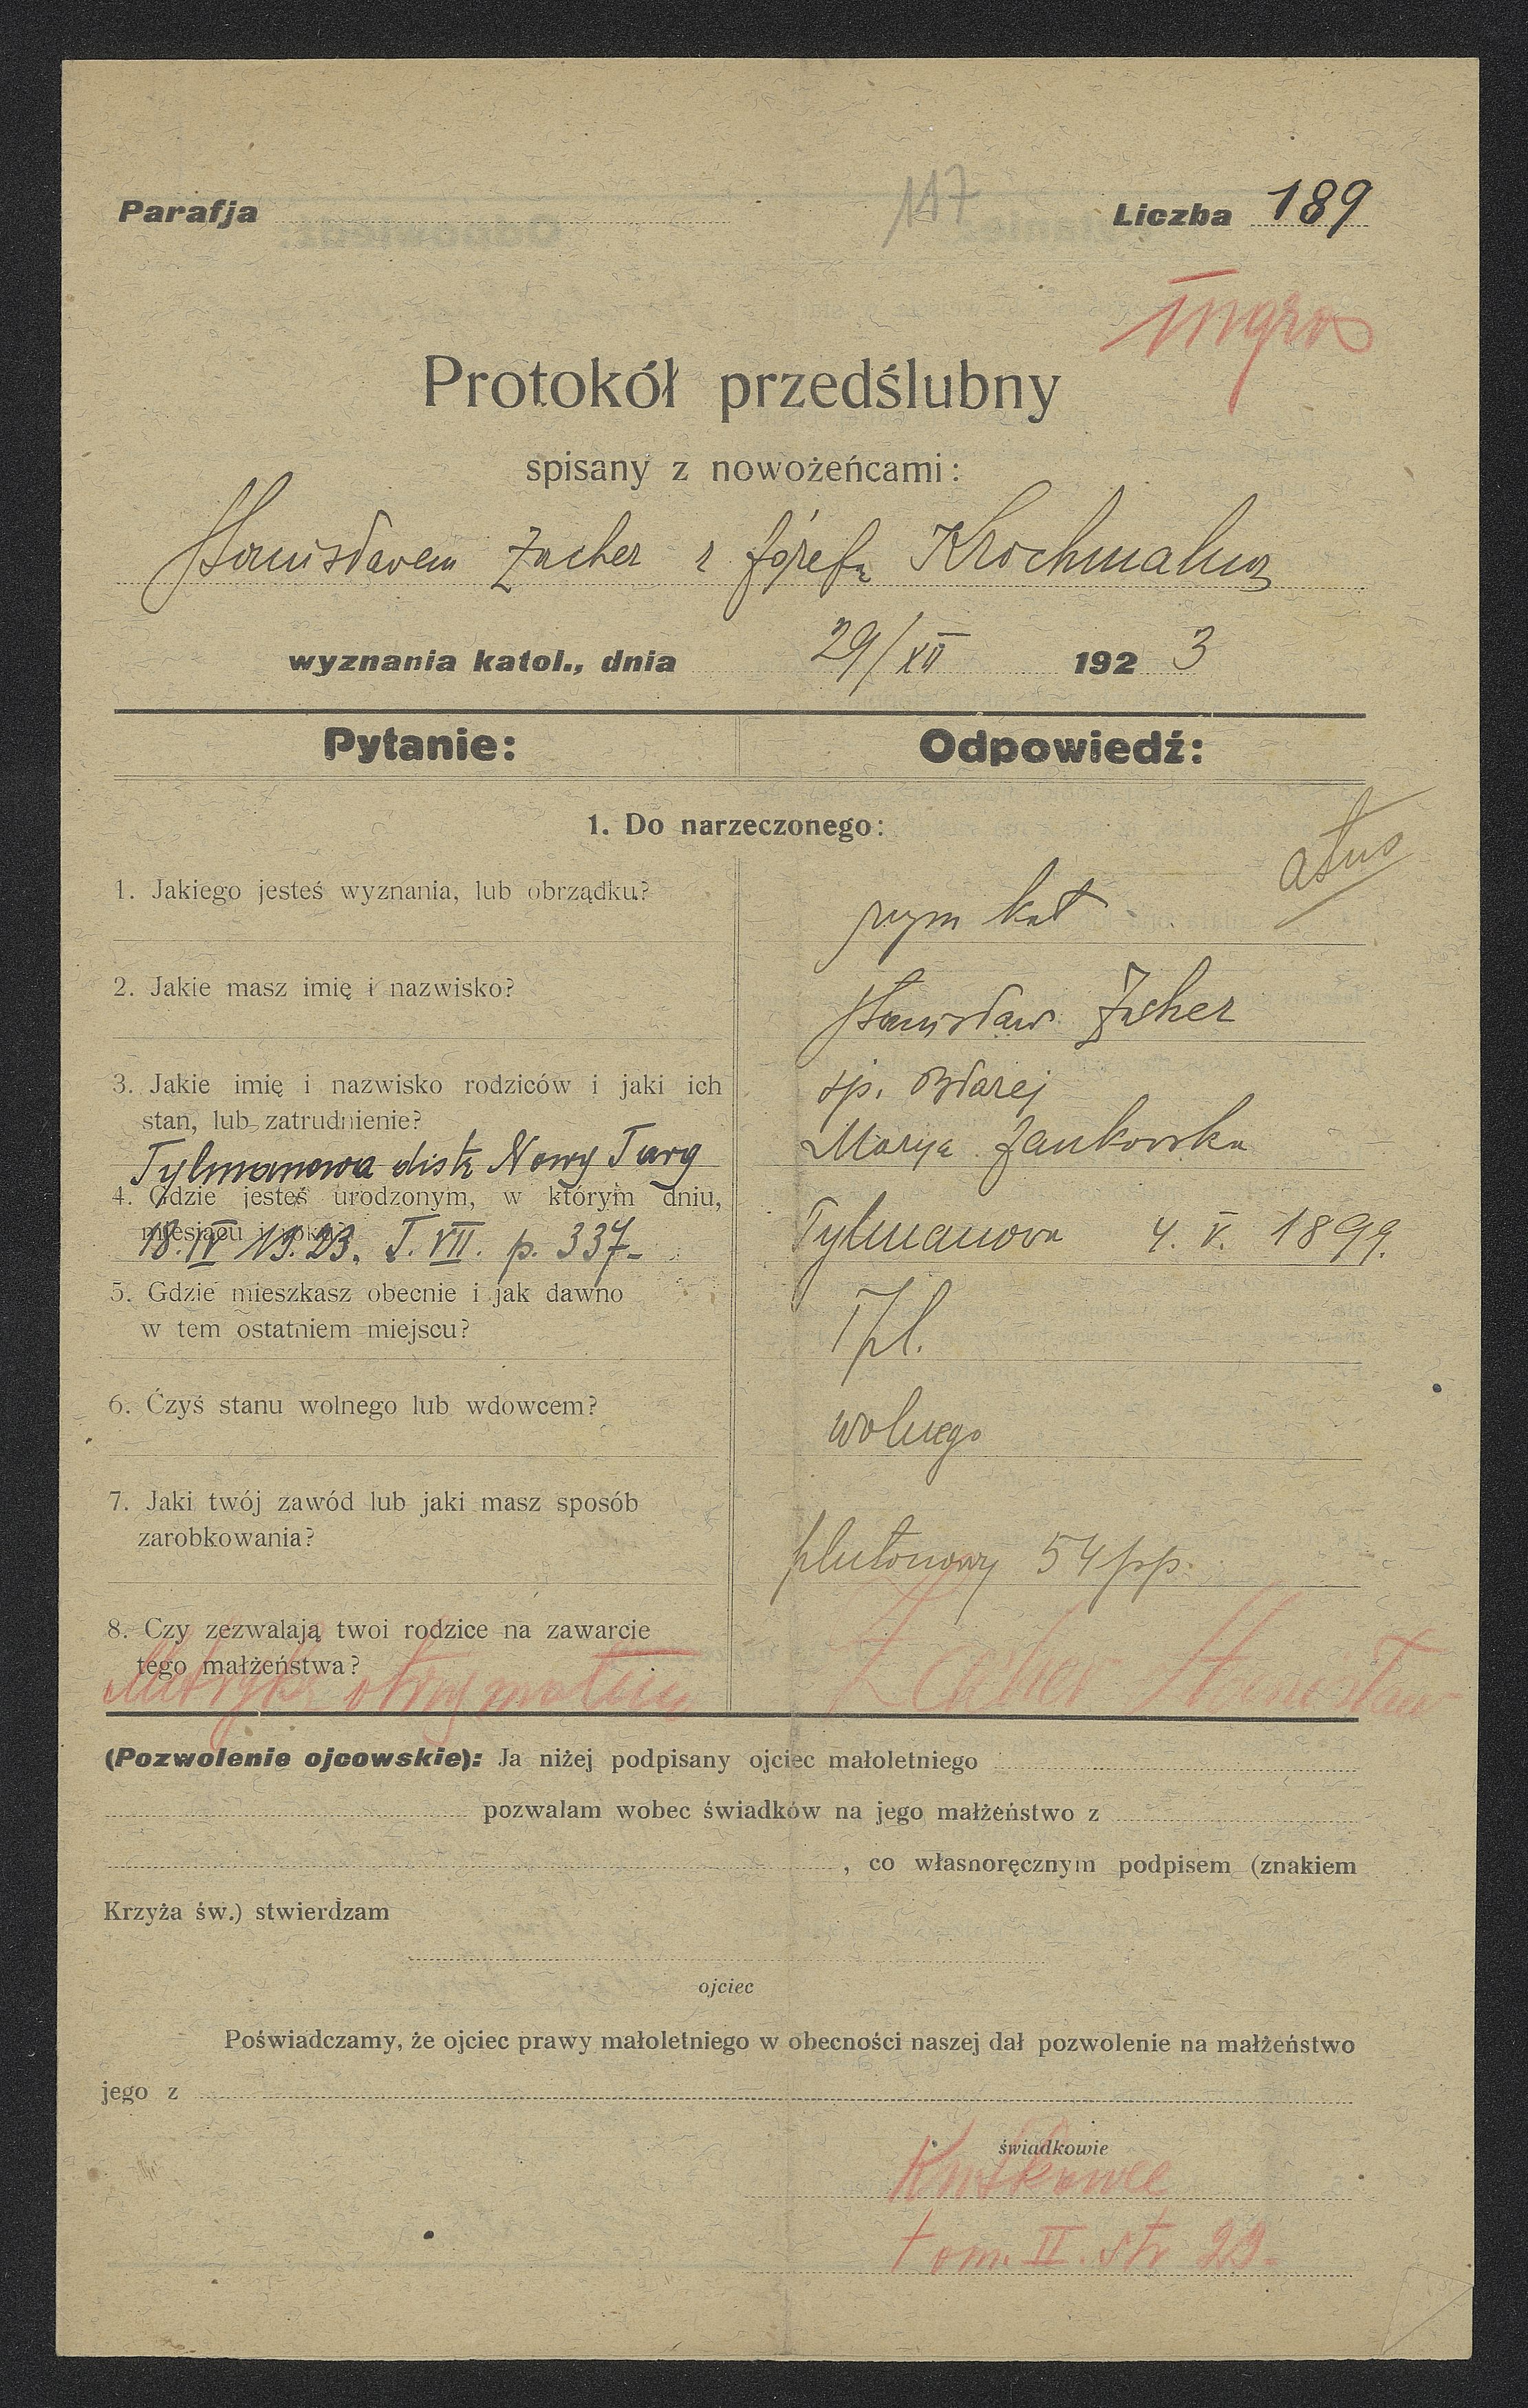 Parafja
117
Liczba 189
ingros
Protokół przedślubny
spisany z nowożeńcami:
Stanisławem Zacher z Józefą Krochmalną
wyznania katol., dnia 29/XII 192 3
Pytanie: Odpowiedź:
1. Do narzeczonego:
1. Jakiego jesteś wyznania, lub obrządku?
rzym kat
2. Jakie masz imię i nazwisko?
Stanisław Zacher
3. Jakie imię i nazwisko rodziców i jaki ich
stan, lub zatrudnienie?
śp. Błażej
Marya Jankowska
Tylmanowa distr Nowy Targ
4. Gdzie jesteś urodzonym, w którym dniu,
miesiącu i roku?
18. IV 19.23. T. VII. p. 337-
Tylmanowa 4. V. 1899.
5. Gdzie mieszkasz obecnie i jak dawno
w tem ostatniem miejscu?
Tpl.
6. Czyś stanu wolnego lub wdowcem?
wolnego
7. Jaki twój zawód lub jaki masz sposób
zarobkowania?
plutonowy 54 pp.
8. Czy zezwalają twoi rodzice na zawarcie
tego małżeństwa?
Metrykę otrzymałem
Zacher Stanisław
(Pozwolenie ojcowskie): Ja niżej podpisany ojciec małoletniego
pozwalam wobec świadków na jego małżeństwo z
, co własnoręcznym podpisem (znakiem
Krzyża św.) stwierdzam
ojciec
Poświadczamy, że ojciec prawy małoletniego w obecności naszej dał pozwolenie na małżeństwo
jego z
świadkowie
tom. II. str 29-